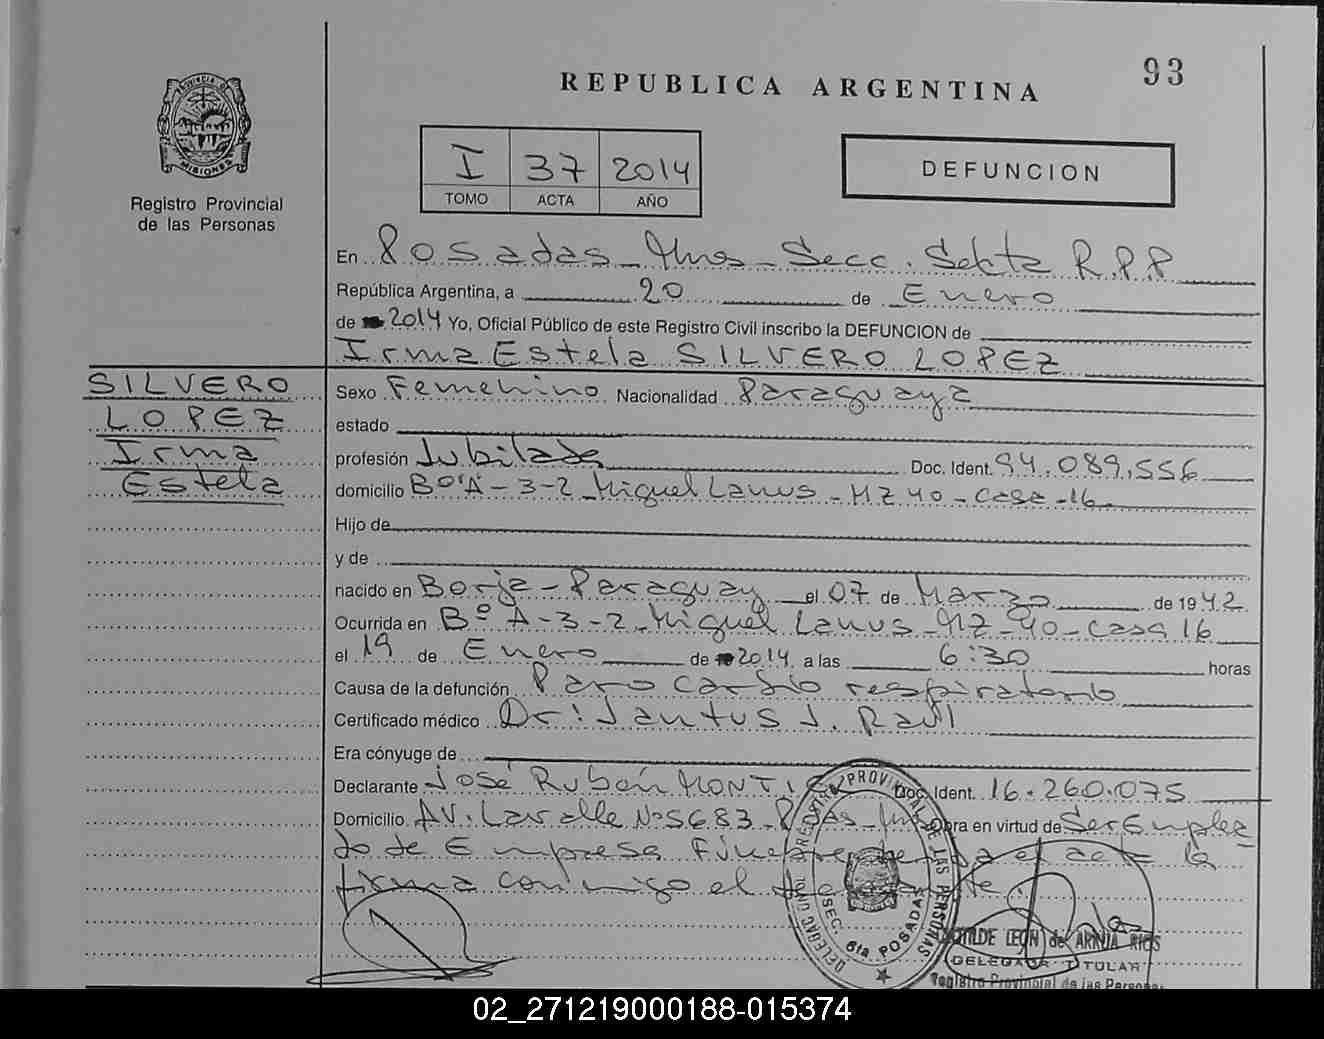 93
REPUBLICA ARGENTINA
PROVINCIA DE MISIONES
Registro Provincial
de las Personas
I 37 2014
TOMO ACTA AÑO
DEFUNCION
En Posadas - Mnes - Secc. Sexta R.P.P
República Argentina, a 20 de Enero
de 2014 Yo, Oficial Público de este Registro Civil inscribo la DEFUNCION de
Irma Estela SILVERO LOPEZ
SILVERO
LOPEZ
Irma
Estela
Sexo Femenino Nacionalidad Paraguaya
estado
profesión Jubilada Doc. Ident. 94.089.556
domicilio Bº A-3-2 Miguel Lanus - MZ 40 - Casa - 16
Hijo de
y de
nacido en Borja - Paraguay el 07 de Marzo de 1942
Ocurrida en Bº A-3-2 Miguel Lanus - MZ - 40 - Casa 16
el 19 de Enero de 2014 a las 6:30 horas
Causa de la defunción Paro cardio respiratorio
Certificado médico Dr: Jantus J. Raul
Era cónyuge de
Declarante José Rubén MONTI Doc. Ident. 16.260.075
Domicilio AV. Lavalle Nº 5683 - Pdas - Obra en virtud de Ser Emplea
do de Empresa Funebre el acta la
firma conmigo el
DELEGAC REGISTRO PROVINCIAL DE LAS PERSONAS
SEC. 6ta POSADAS
LEON de ARNIA RIOS
DELEGADA TITULAR
Registro Provincial de las Personas
02_271219000188-015374